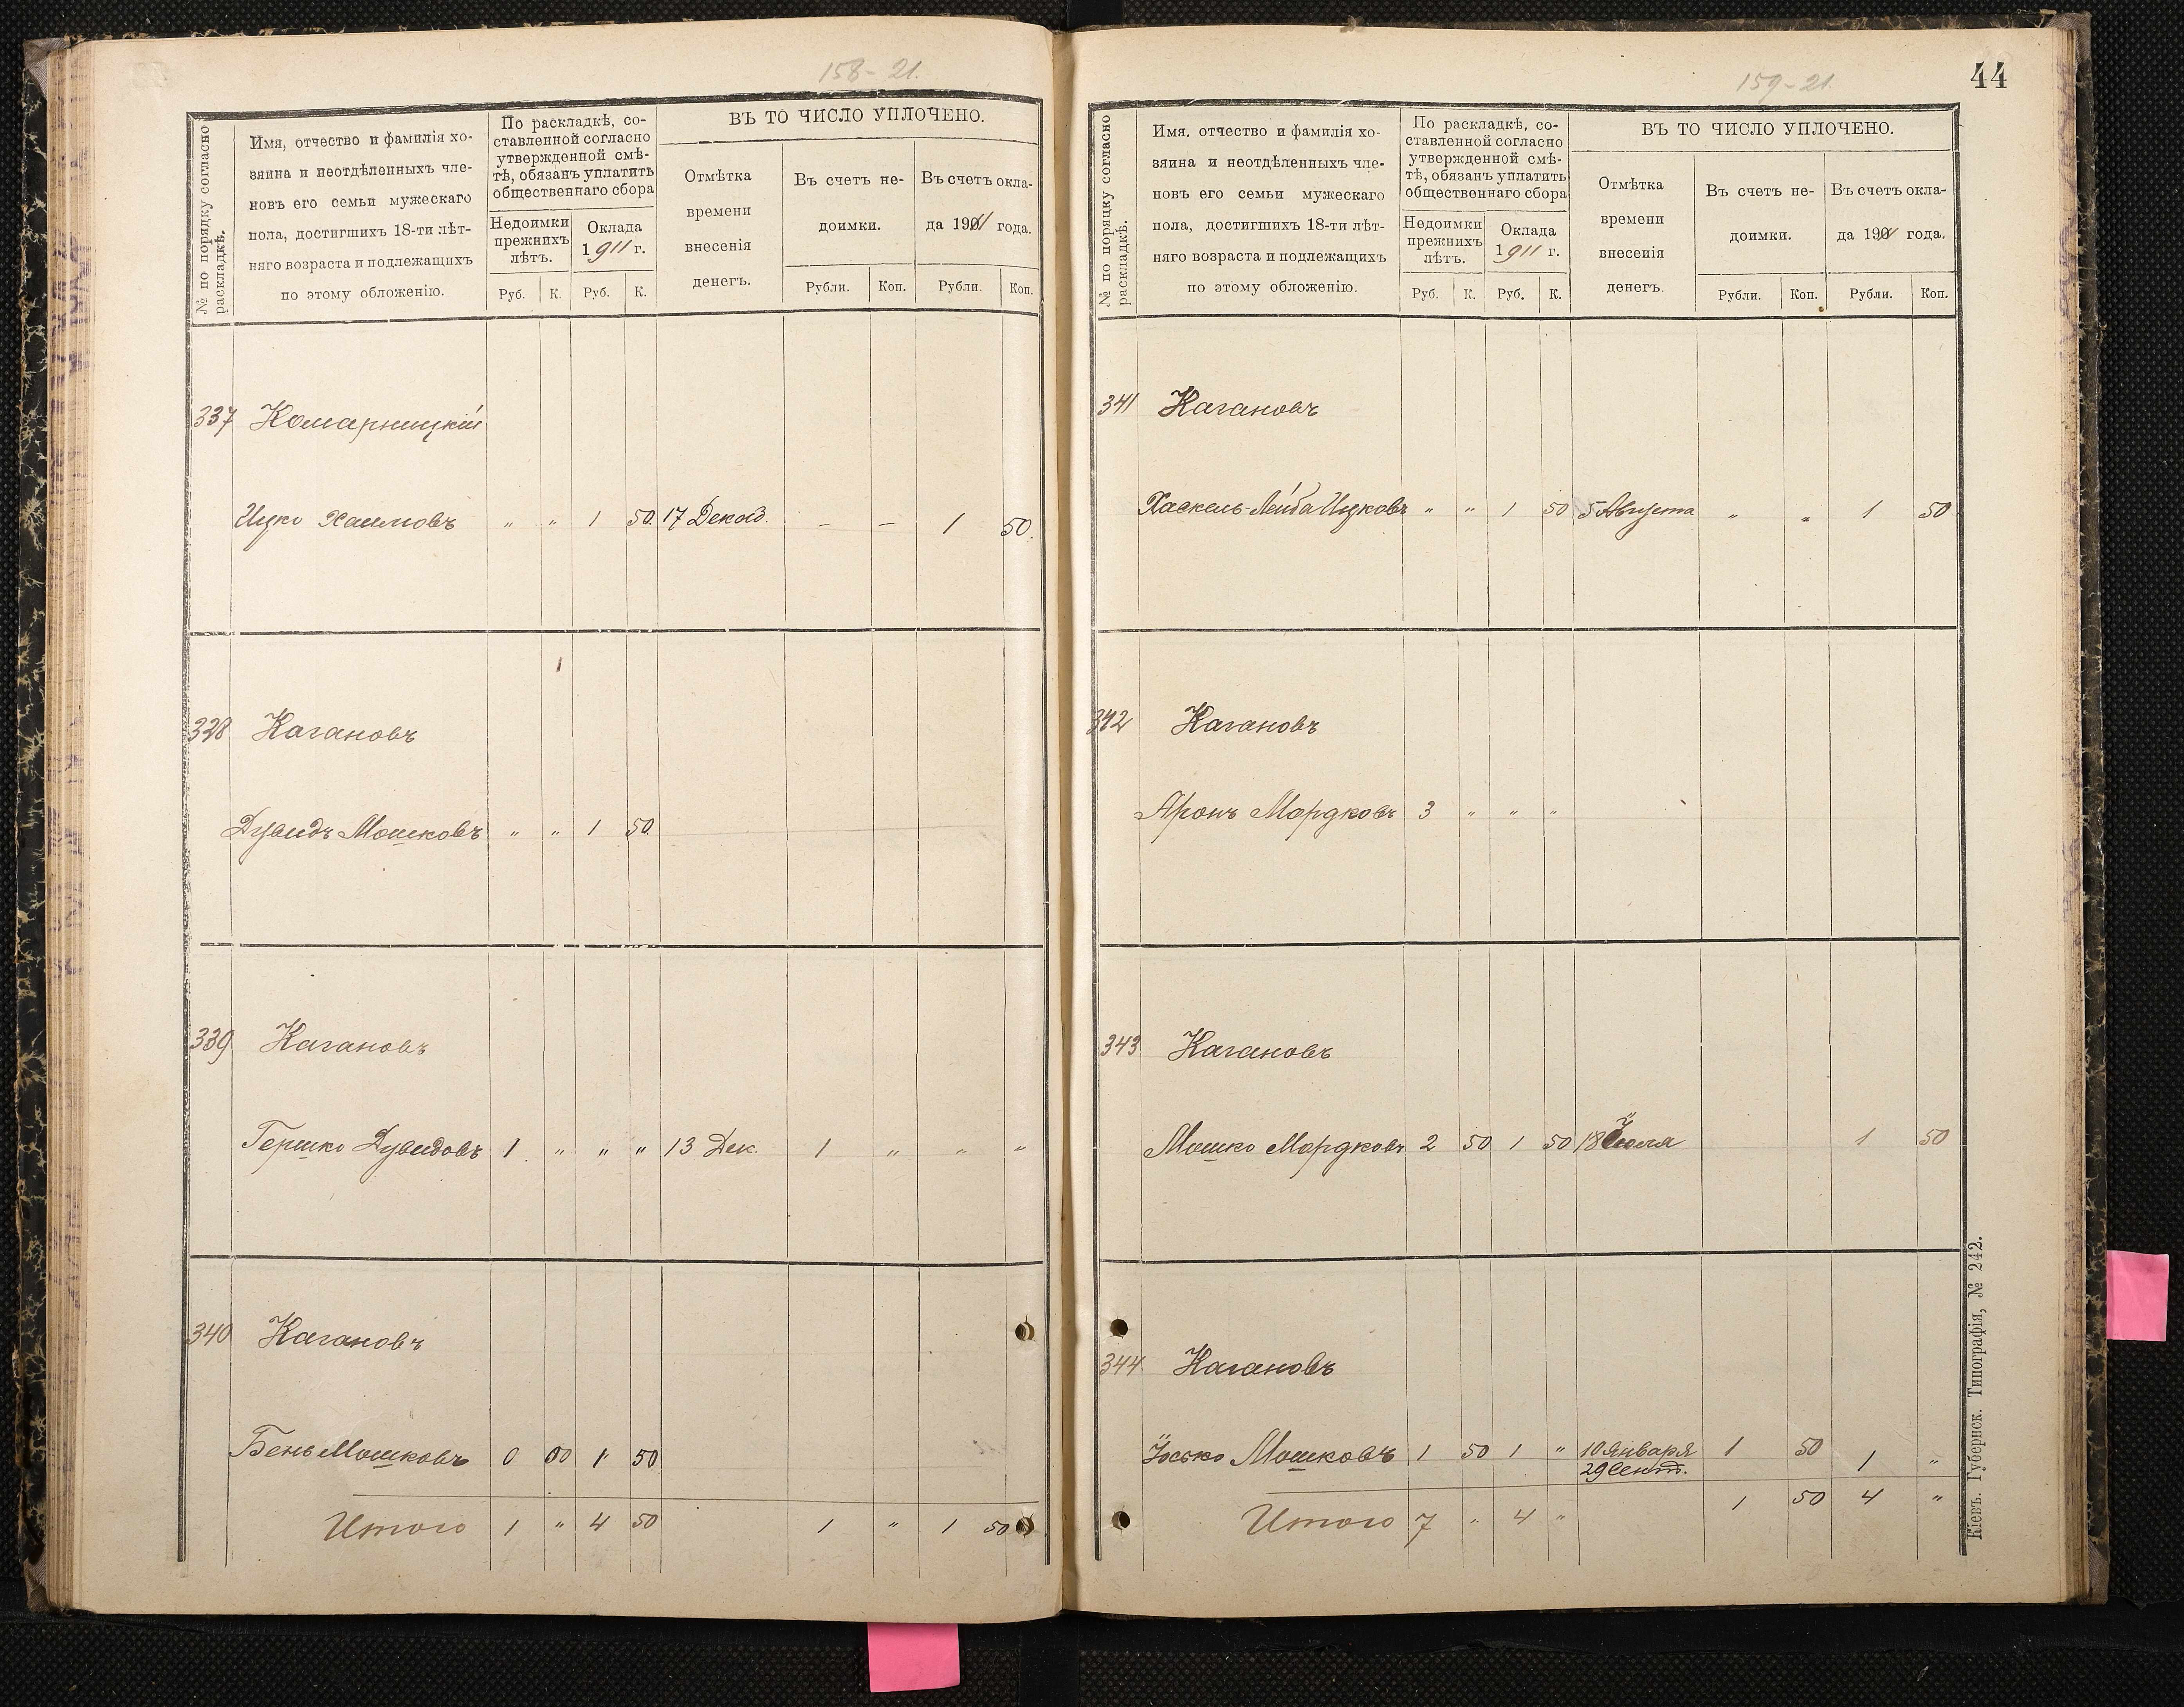 158-21.
№ по порядку согласно
раскладкѣ.
Имя, отчество и фамилія хо-
зяина и неотдѣленныхъ чле-
новъ его семьи мужескаго
пола, достигшихъ 18-ти лѣт-
няго возраста и подлежащихъ
по этому обложенію.
По раскладкѣ, со-
ставленной согласно
утвержденной смѣ-
тѣ, обязанъ уплатить
общественнаго сбора
Недоимки
прежнихъ
лѣтъ.
Оклада
1911 г.
Руб. К. Руб. К.
ВЪ ТО ЧИСЛО УПЛОЧЕНО.
Отмѣтка
времени
внесенія
денегъ.
Въ счетъ не-
доимки.
Въ счетъ окла-
да 1911 года.
Рубли. Коп. Рубли. Коп.
337 Комарницкій
Ицко Хаимовъ " " 1 50 17 - - 1 50.
338 Кагановъ
Дувидъ Мошковъ " " 1 50
339 Кагановъ
Гершко Дувидовъ 1 " " " 13 Дек. 1 " " "
340 Кагановъ
Бень Мошковъ 0 00 1 50
Итого 1 " 4 50 1 " 1 50
159-21.
44
№ по порядку согласно
раскладкѣ.
Имя, отчество и фамилія хо-
зяина и неотдѣленныхъ чле-
новъ его семьи мужескаго
пола, достигшихъ 18-ти лѣт-
няго возраста и подлежащихъ
по этому обложенію.
По раскладкѣ, со-
ставленной согласно
утвержденной смѣ-
тѣ, обязанъ уплатить
общественнаго сбора
Недоимки
прежнихъ
лѣтъ.
Оклада
1911 г.
Руб. К. Руб. К.
ВЪ ТО ЧИСЛО УПЛОЧЕНО.
Отмѣтка
времени
внесенія
денегъ.
Въ счетъ не-
доимки.
Въ счетъ окла-
да 1911 года.
Рубли. Коп. Рубли. Коп.
341 Кагановъ
Хаскель-Лейба Ицковъ " " 1 50 5 Августа " " 1 50
342 Кагановъ
Аронъ Мордковъ 3 " " "
343 Кагановъ
Мошко Мордковъ 2 50 1 50 18 Іюля 1 50
344 Кагановъ
Іосько Мошковъ 1 50 1 " 10 Января 1 50
29 Сент. 1 "
Итого 7 " 4 " 1 50 4 "
Кіевъ. Губернск. Типографія, № 242.